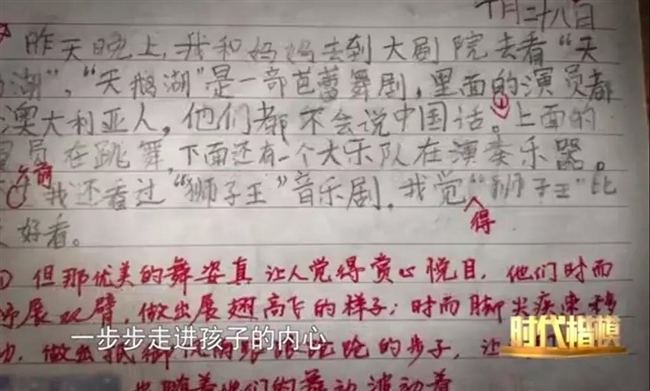 十月二十八日
昨天晚上,我和妈妈去到大剧院去看“天
湖”,“天鹅湖”是一部芭蕾舞剧,里面的演员都
澳大利亚人,他们都不会说中国话。上面的
员在跳舞,下面还有一个大乐队在演奏乐器。
前
我还看过“狮子王”音乐剧,我觉“狮子王”比
得
好看。
① 但那优美的舞姿真让人觉得赏心悦目,他们时而
展双臂,做出展翅高飞的样子;时而脚尖疾速移
做出 的步子,让
一步步走进孩子的内心
时代楷模
随着他们的舞动波动着